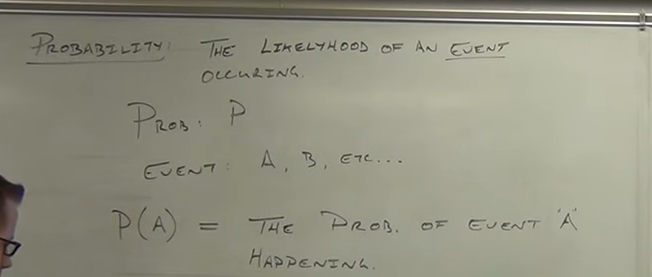 PROBABILITY: THE LIKELYHOOD OF AN EVENT
OCCURING.
PROB: P
EVENT: A, B, ETC...
P(A) = THE PROB. OF EVENT "A"
HAPPENING.